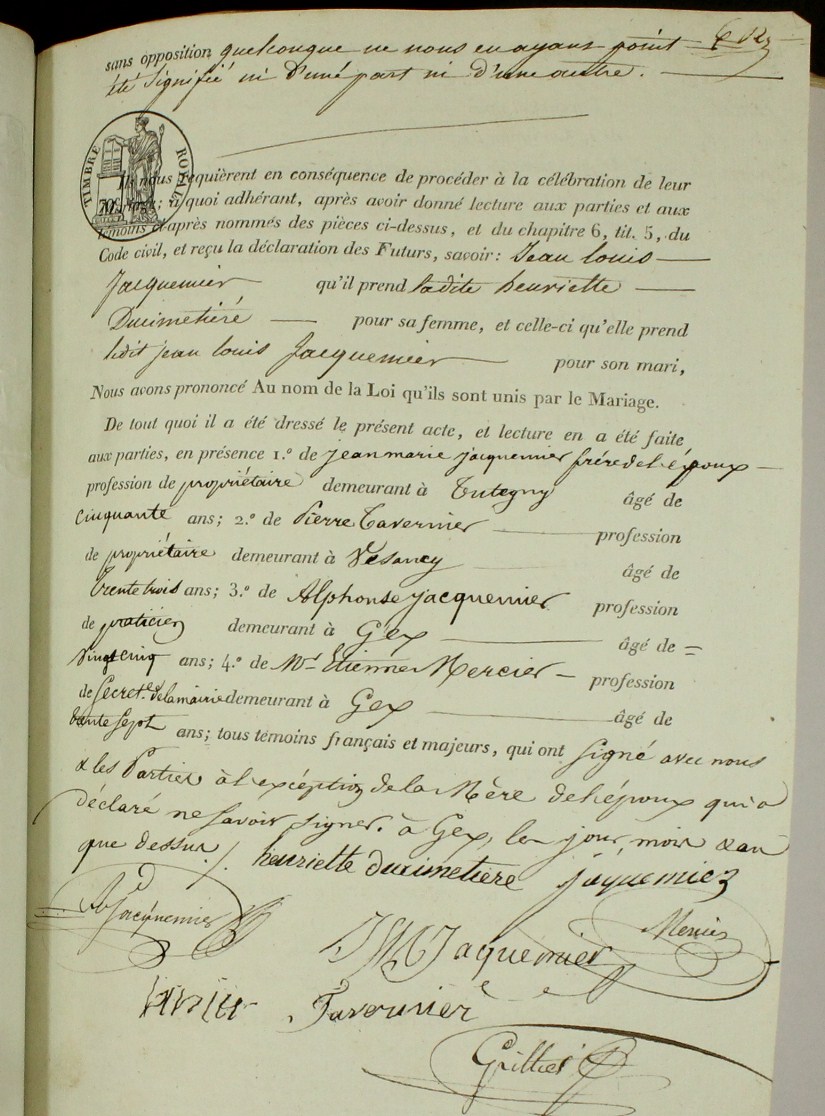 sans opposition quelconque ne nous en ayant point
été signifié ni d'une part ni d'une autre.
TIMBRE ROYAL
70c
Ils nous requièrent en conséquence de procéder à la célébration de leur
mariage; à quoi adhérant, après avoir donné lecture aux parties et aux
témoins ci-après nommés des pièces ci-dessus, et du chapitre 6, tit. 5, du
Code civil, et reçu la déclaration des Futurs, savoir: Jean louis
Jacquemier qu'il prend ladite henriette
Ducimetière pour sa femme, et celle-ci qu'elle prend
ledit jean louis Jacquemier pour son mari,
Nous avons prononcé Au nom de la Loi qu'ils sont unis par le Mariage.
De tout quoi il a été dressé le présent acte, et lecture en a été faite
aux parties, en présence 1.º de jean marie jacquemier frère de l'époux
profession de propriétaire demeurant à Tutegny âgé de
cinquante ans; 2.º de Pierre Tavernier profession
de propriétaire demeurant à Vesancy âgé de
trente trois ans; 3.º de Alphonse jacquemier profession
de praticien demeurant à Gex âgé de
vingt cinq ans; 4.º de Mr. Etienne Mercier profession
de Secret.re de la mairie demeurant à Gex âgé de
trente sept ans; tous témoins français et majeurs, qui ont signé avec nous
& les Parties à l'exception de la Mère de l'époux qui a
déclaré ne savoir signer. à Gex, les jour, mois & an
que dessus /. henriette ducimetière jaquemier
Jacquemier Mercier
JM Jaquemier
Tavernier